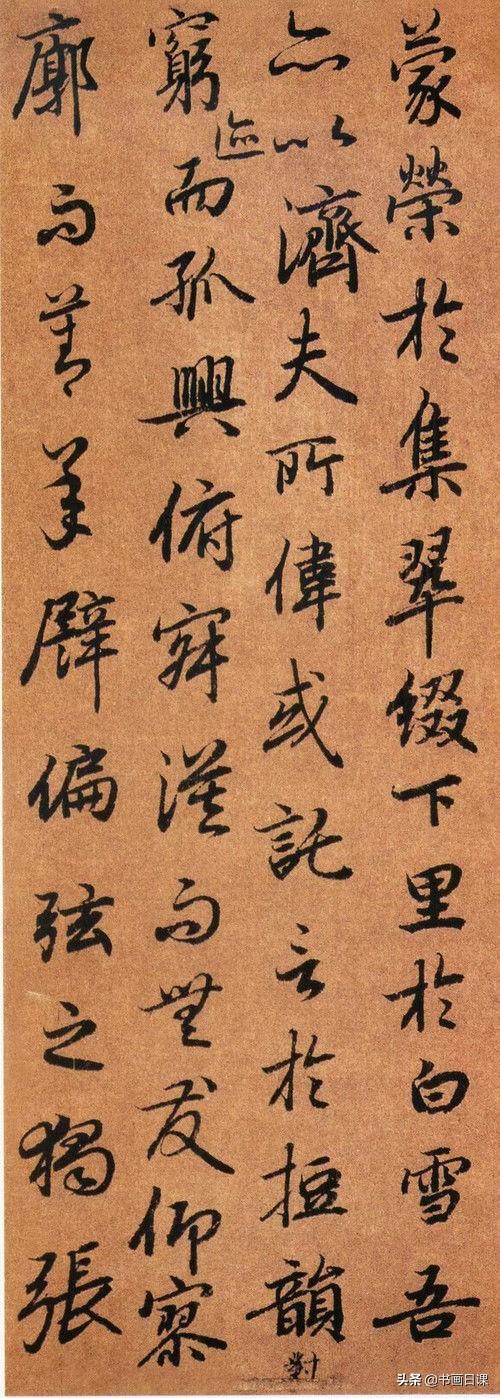 蒙榮於集翠綴下里於白雪吾
亦以濟夫所偉或託言於短韻對
窮迹而孤興俯寂漠而無友仰寥
廓而莫承譬偏弦之獨張
头条 @书画日课